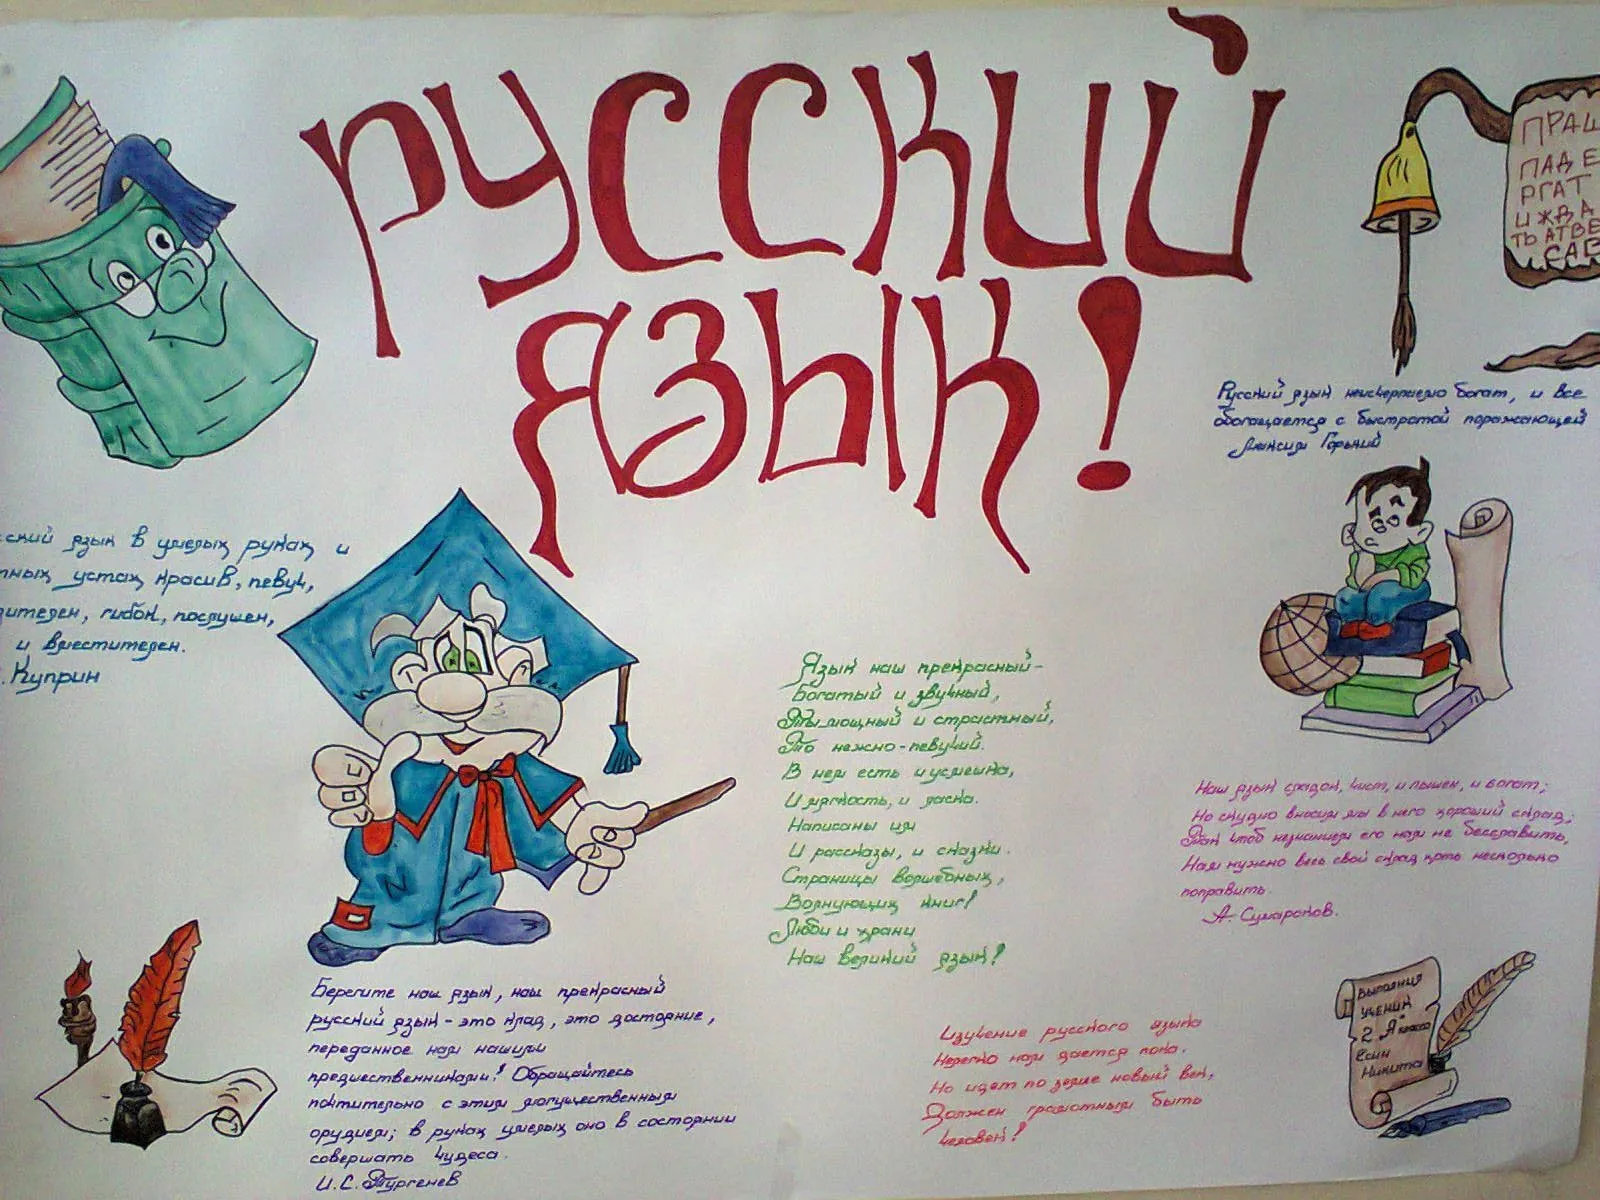 РУССКИЙ
ЯЗЫК!
ПРАШ
ПАДЕ
РГАТ
ИЖДА
ТЬ АТВЕ
САВ
Русский язык неисчерпаемо богат, и все
обогащается с быстротой поражающей
Максим Горький
ский язык в умелых руках и
тных устах красив, певуч,
зителен, гибок, послушен,
и вместителен.
. Куприн
Язык наш прекрасный-
Богатый и звучный,
То мощный и страстный,
То нежно-певучий.
В нем есть и усмешка,
И мягкость, и ласка.
Написаны им
И рассказы, и сказки.
Страницы волшебных,
Волнующих книг!
Люби и храни
Наш великий язык!
Наш язык сладок, чист, и пышен, и богат;
Но скудно вносим мы в него хороший склад;
Так чтоб незнанием его нам не бесславить,
Нам нужно весь свой склад хоть несколько
поправить.
А. Сумароков.
Берегите наш язык, наш прекрасный
русский язык - это клад, это достояние,
переданное нам нашими
предшественниками! Обращайтесь
почтительно с этим могущественным
орудием; в руках умелых оно в состоянии
совершать чудеса.
И. С. Тургенев
Изучение русского языка
Нелегко нам дается пока.
Но идет по земле новый век,
Должен грамотным быть
человек!
Выполнил
ученик
2 "Я" класса
Есин
Никита